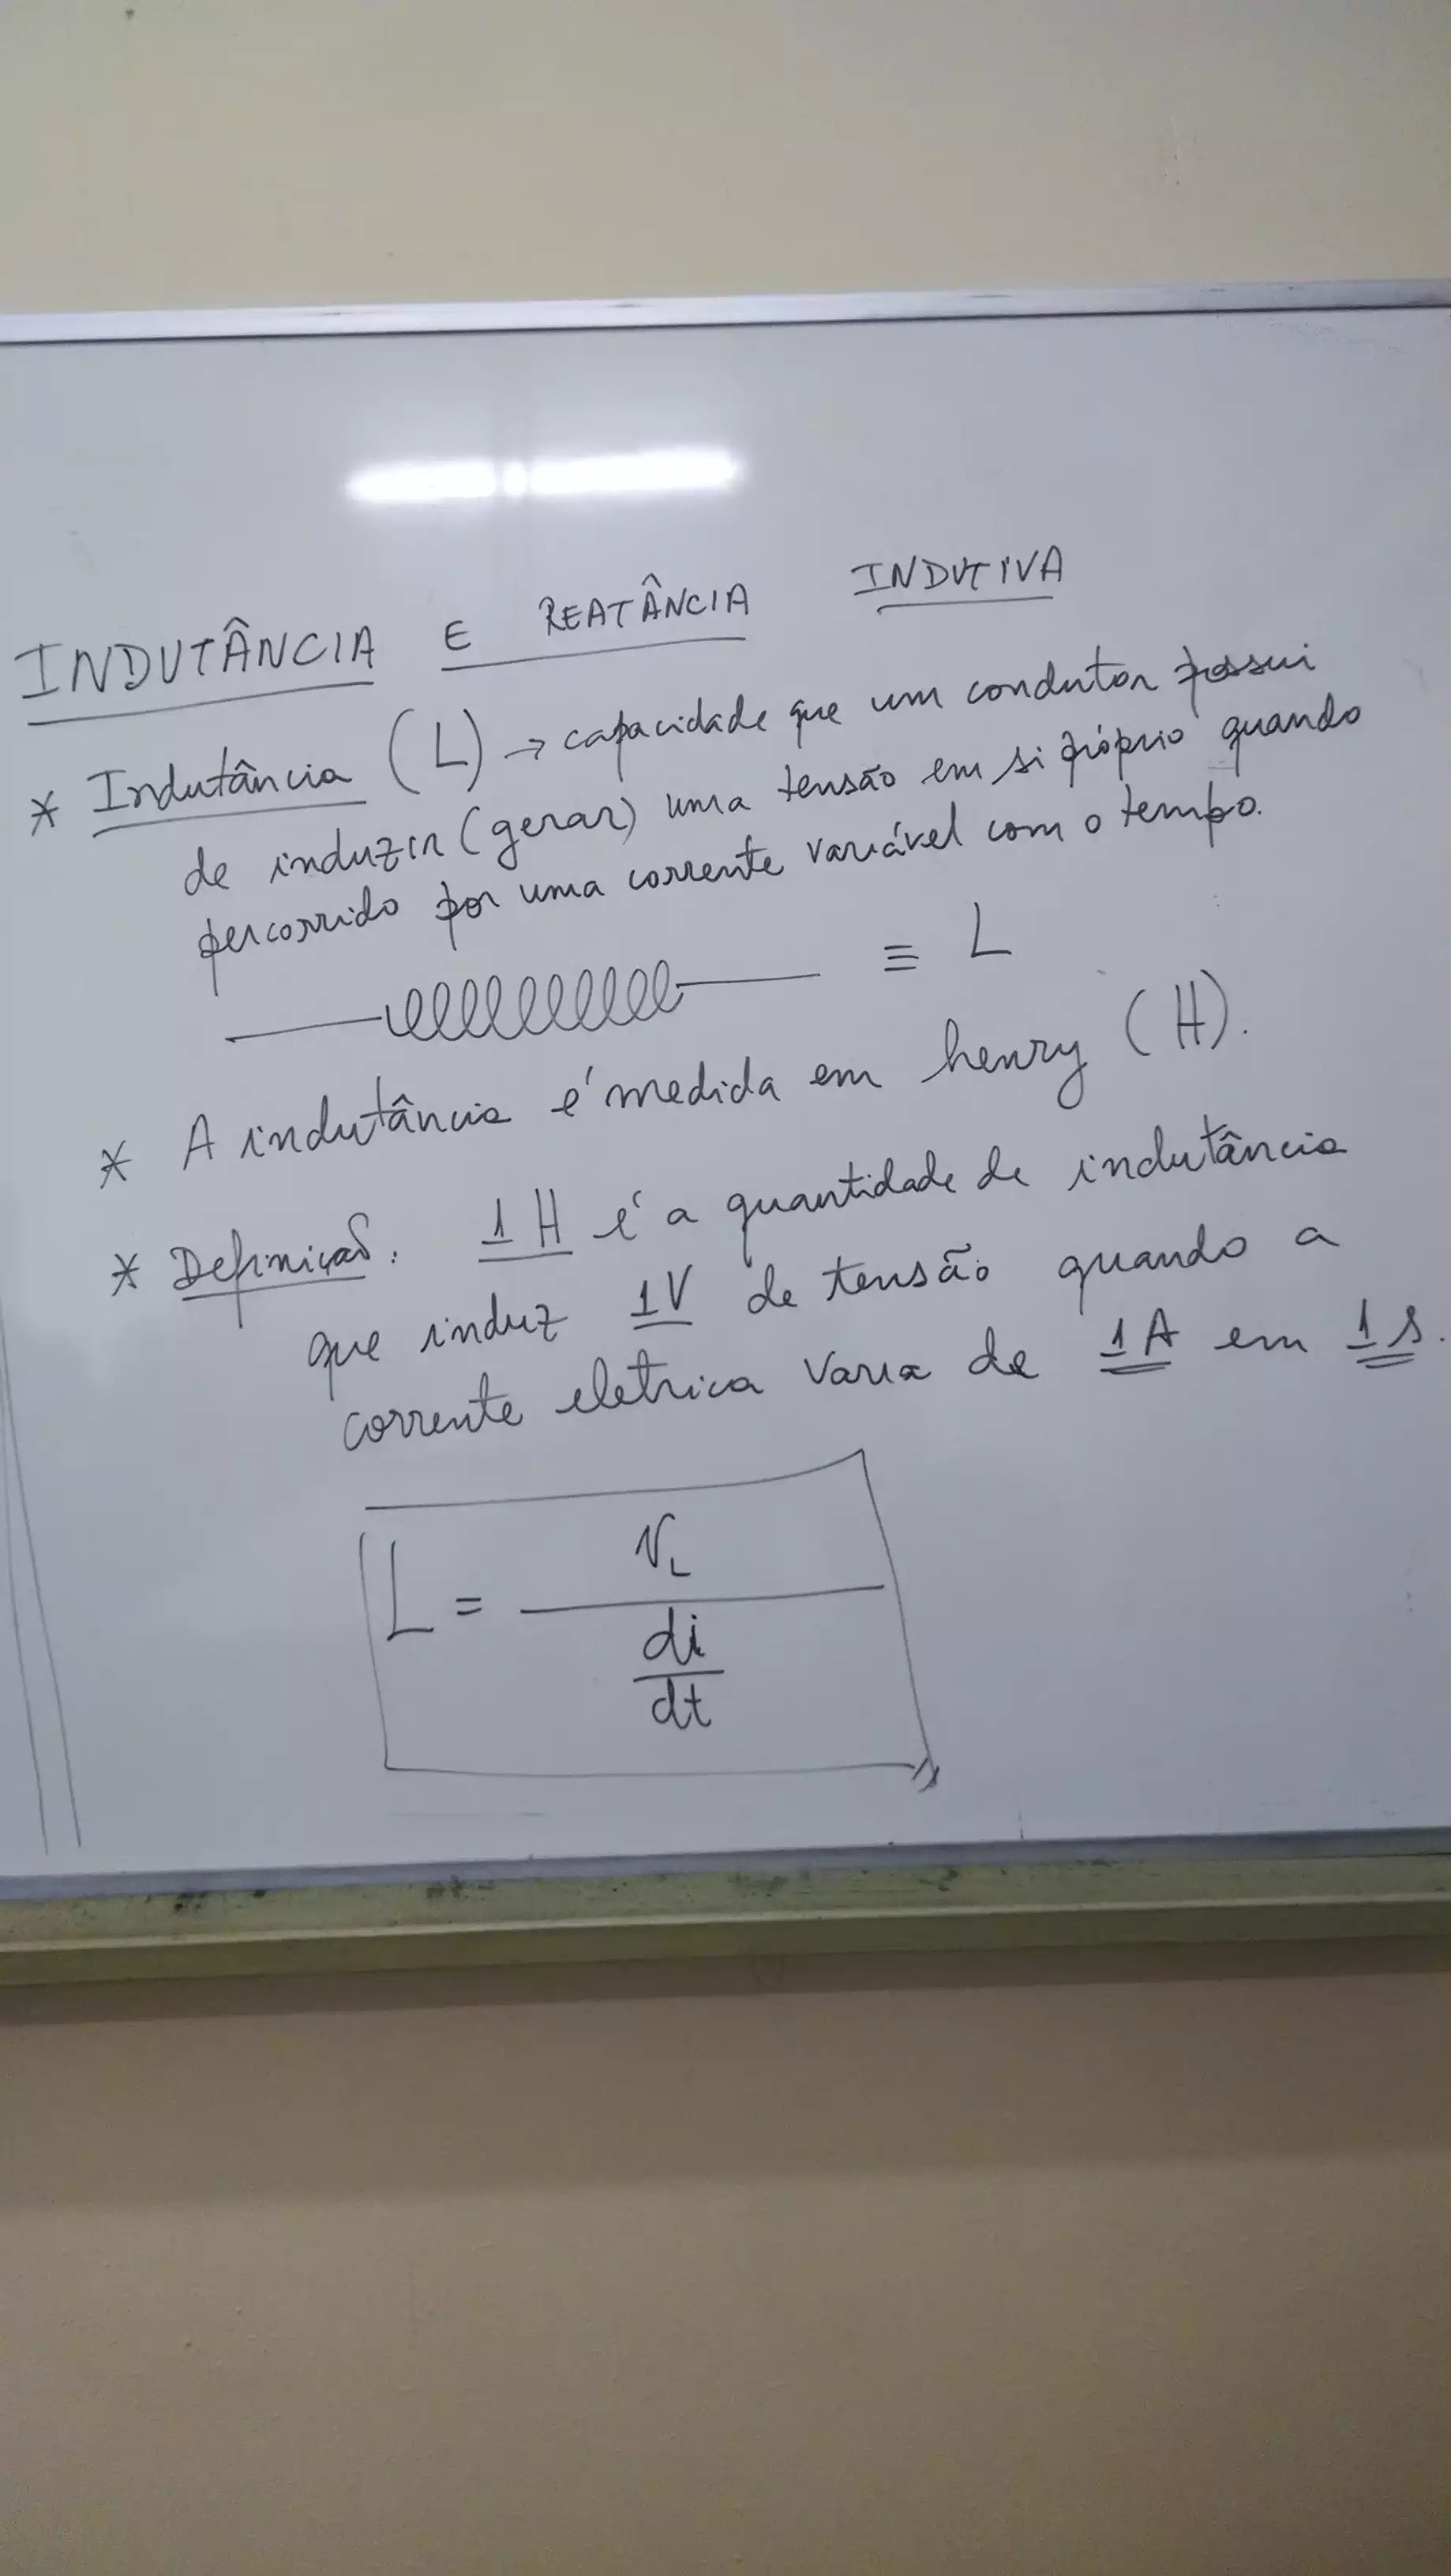 INDUTÂNCIA E REATÂNCIA INDUTIVA
* Indutância (L) → capacidade que um condutor possui
de induzir (gerar) uma tensão em si próprio quando
percorrido por uma corrente variável com o tempo.
≡ L
* A indutância é medida em henry (H).
* Definição: 1 H é a quantidade de indutância
que induz 1V de tensão quando a
corrente eletrica varia de 1A em 1s.
L = v_L / (di/dt)